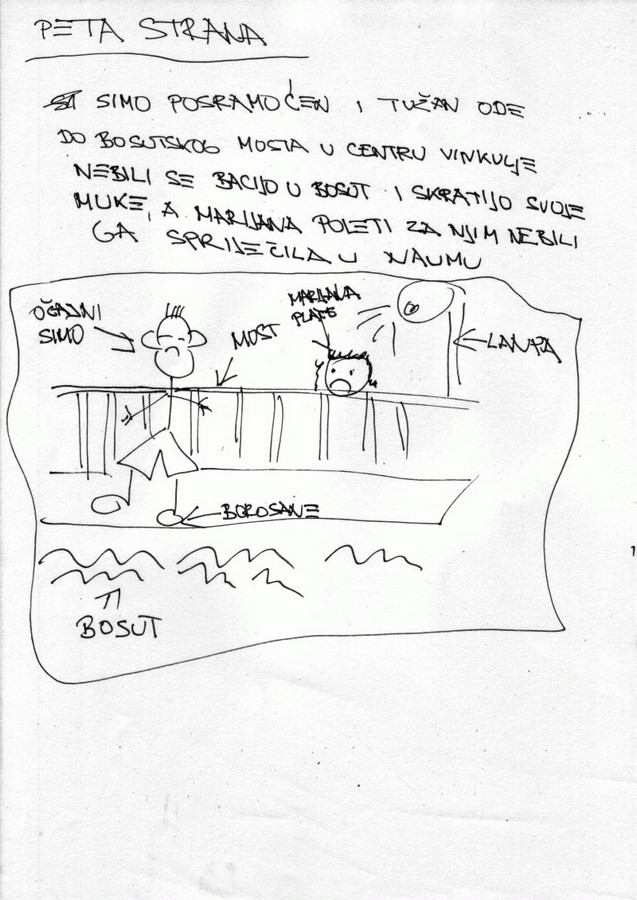 PETA STRANA
SIMO POSRAMOĆEN I TUŽAN ODE
DO BOSUTSKOG MOSTA U CENTRU VINKULJE
NEBILI SE BACIJO U BOSUT I SKRATIJO SVOJE
MUKE, A MARIJANA POLETI ZA NJIM NEBILI
GA SPRIJEČILA U NAUMU
OČAJNI
SIMO
MOST
MARIJANA
PLAČE
LAMPA
BOROSANE
BOSUT